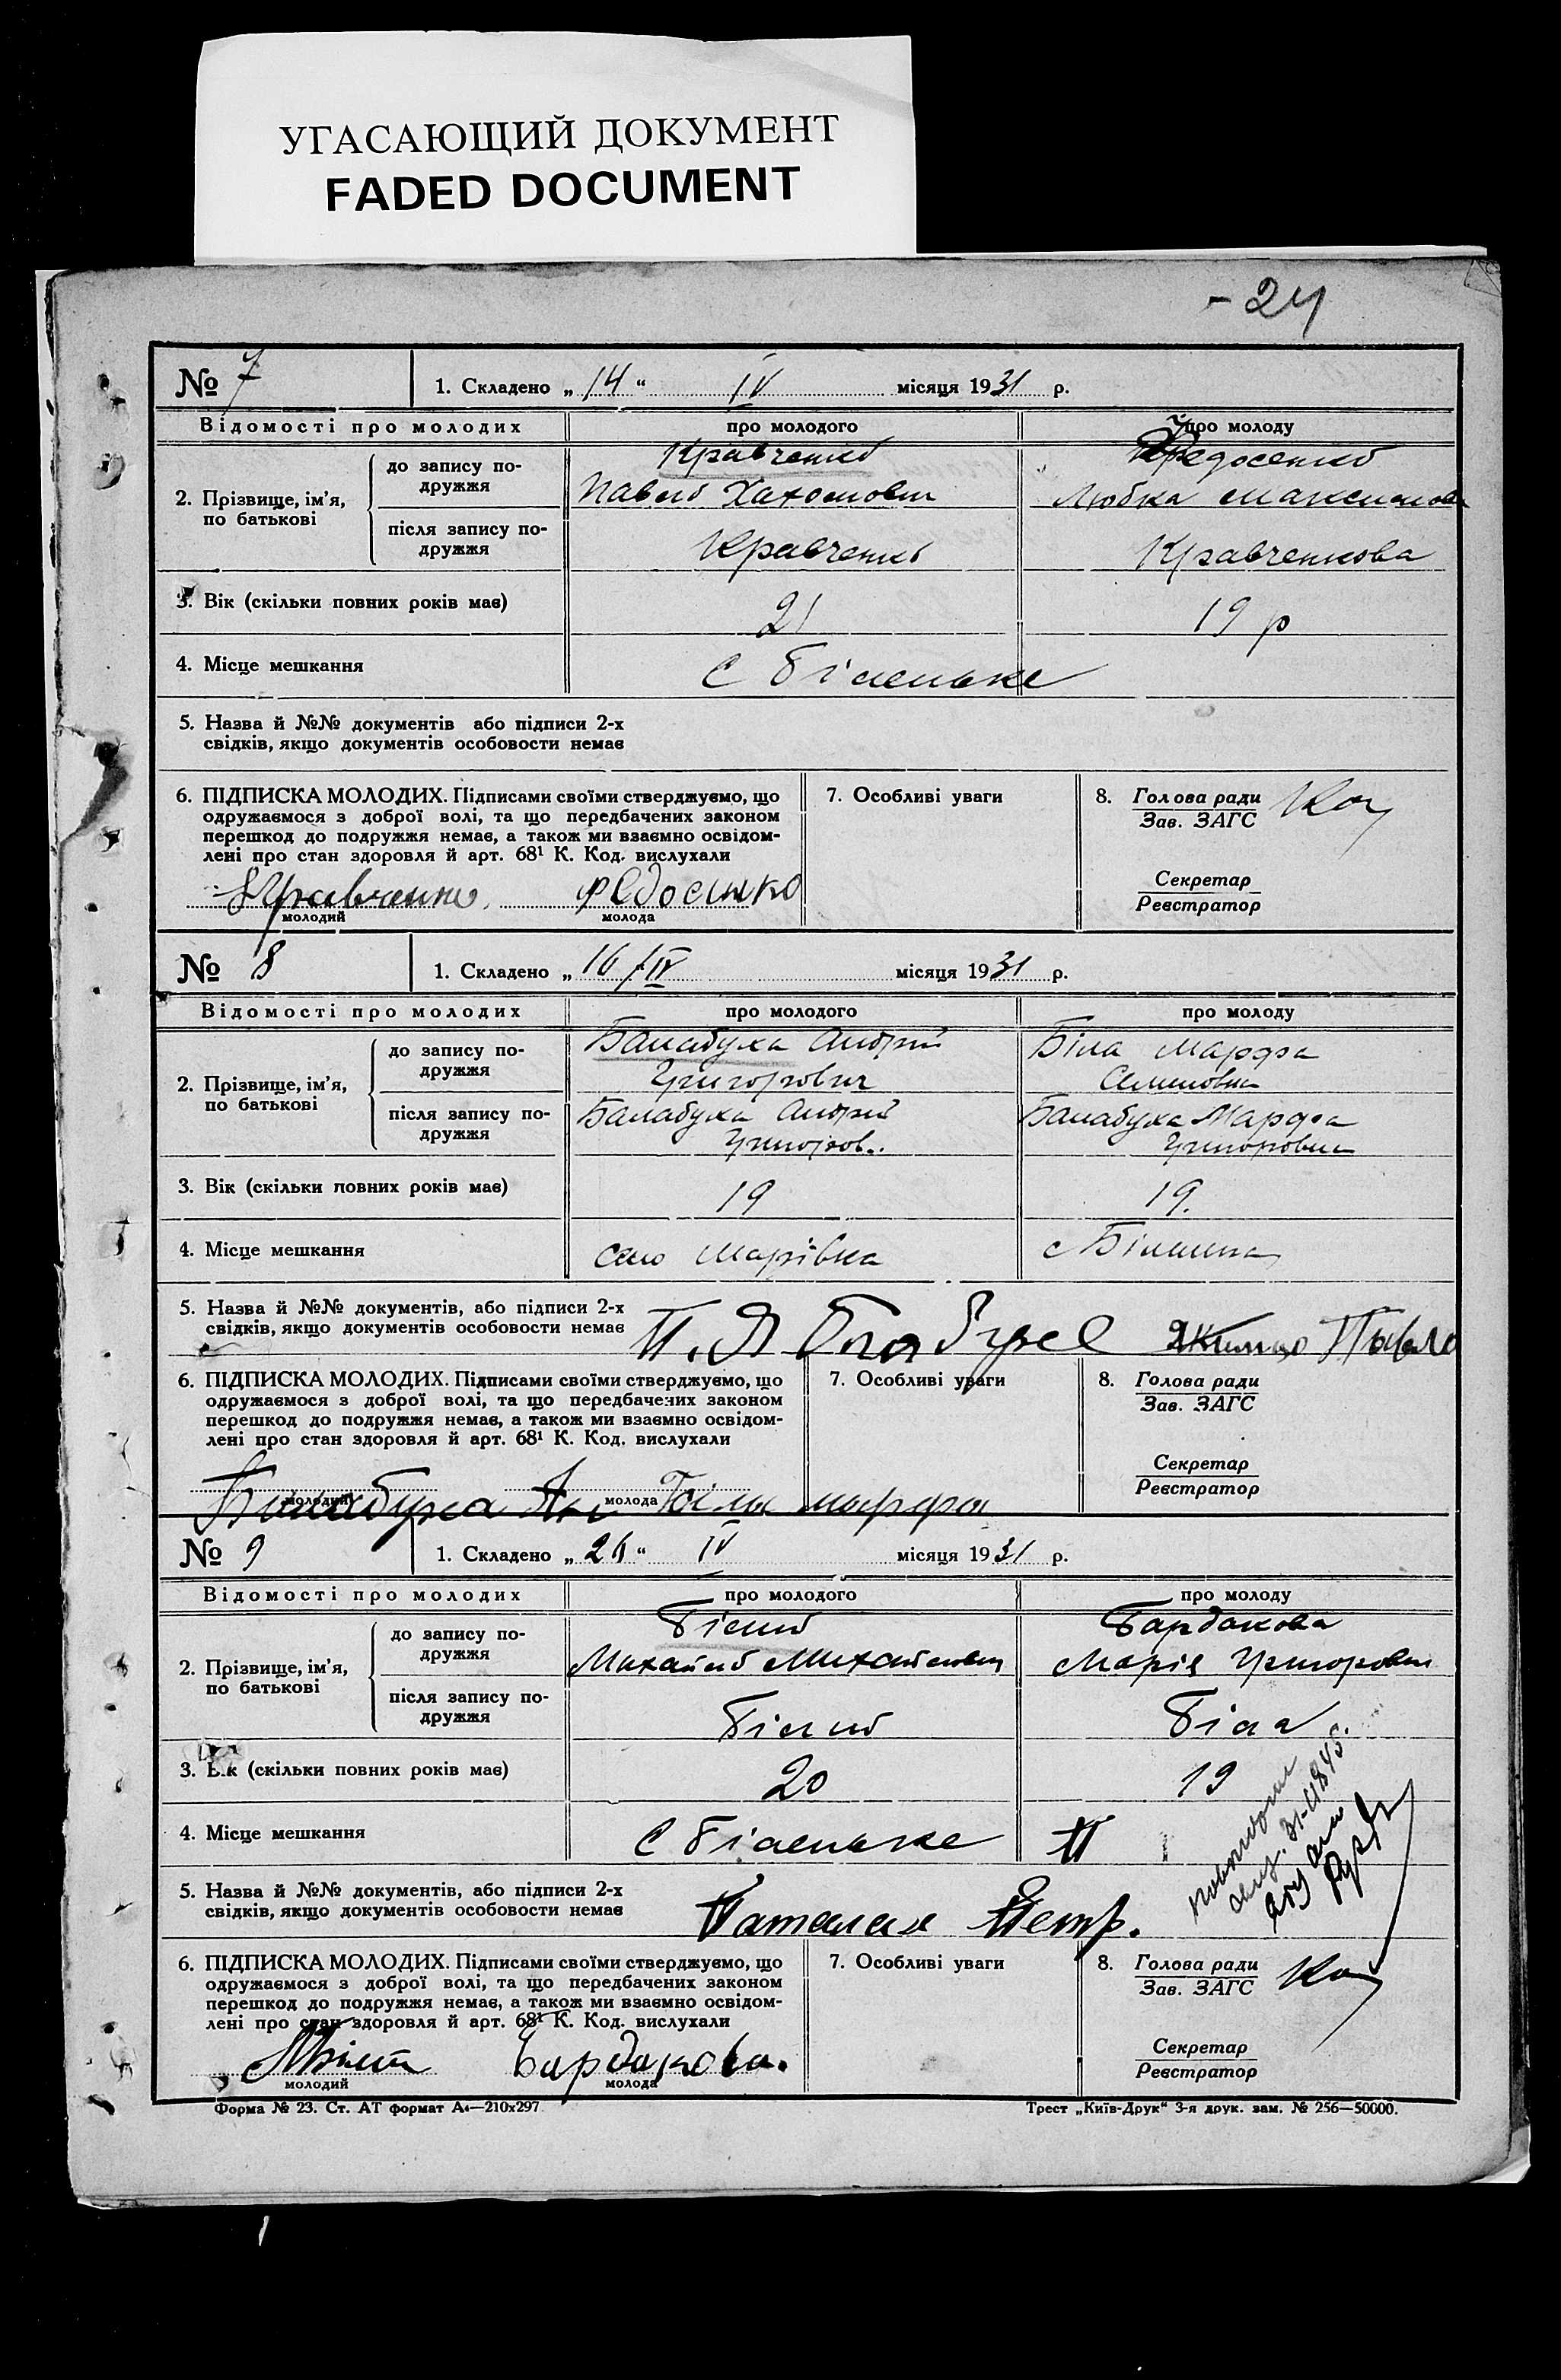 УГАСАЮЩИЙ ДОКУМЕНТ
FADED DOCUMENT
- 24
№ 7
1. Складено „ 14 “ IV місяця 1931 р.
Відомості про молодих
про молодого
про молоду
2. Прізвище, ім’я, по батькові
до запису по-
дружжя
Кравченко
Павло
Федосенко
Любка Максимовн
після запису по-
дружжя
Кравченко
Кравченкова
3. Вік (скільки повних років має)
21
19 р
4. Місце мешкання
с Біленьке
5. Назва й №№ документів або підписи 2-х
свідків, якщо документів особовости немає
6. ПІДПИСКА МОЛОДИХ. Підписами своїми стверджуємо, що
одружаємося з доброї волі, та що передбачених законом
перешкод до подружжя немає, а також ми взаємно освідом-
лені про стан здоровля й арт. 68¹ К. Код. вислухали
Кравченко
молодий
Федосенко
молода
7. Особливі уваги
8. Голова ради
Зав. ЗАГС
Секретар
Реєстратор
№ 8
1. Складено „ 16/IV місяця 1931 р.
Відомості про молодих
про молодого
про молоду
2. Прізвище, ім’я,
по батькові
до запису по-
дружжя
Балабуха Андрій
Григорович
Біла Марфа
Семеновна
після запису по-
дружжя
Балабуха Андрій
Григоров.
Балабуха Марфа
Григоровна
3. Вік (скільки повних років має)
19
19.
4. Місце мешкання
село Марівка
с
5. Назва й №№ документів, або підписи 2-х
свідків, якщо документів особовости немає
Павло
6. ПІДПИСКА МОЛОДИХ. Підписами своїми стверджуємо, що
одружаємося з доброї волі, та що передбачених законом
перешкод до подружжя немає, а також ми взаємно освідом-
лені про стан здоровля й арт. 68¹ К. Код. вислухали
Балабуха Ан
молодий
Біла марфа
молода
7. Особливі уваги
8. Голова ради
Зав. ЗАГС
Секретар
Реєстратор
№ 9
1. Складено „ 26 “ IV місяця 1931 р.
Відомості про молодих
про молодого
про молоду
2. Прізвище, ім’я,
по батькові
до запису по-
дружжя
Білий
Михайло Михайлович
Бардакова
Марія Григоровн
після запису по-
дружжя
Білий
Біла
3. Вік (скільки повних років має)
20
19
4. Місце мешкання
с Біленьке
5. Назва й №№ документів, або підписи 2-х
свідків, якщо документів особовости немає
Петр.
6. ПІДПИСКА МОЛОДИХ. Підписами своїми стверджуємо, що
одружаємося з доброї волі, та що передбачених законом
перешкод до подружжя немає, а також ми взаємно освідом-
лені про стан здоровля й арт. 68¹ К. Код. вислухали
молодий
Бардакова.
молода
7. Особливі уваги
8. Голова ради
Зав. ЗАГС
Секретар
Реєстратор
Форма № 23. Ст. АТ формат А₄—210х297
Трест „Київ-Друк“ 3-я друк. зам. № 256—50000.